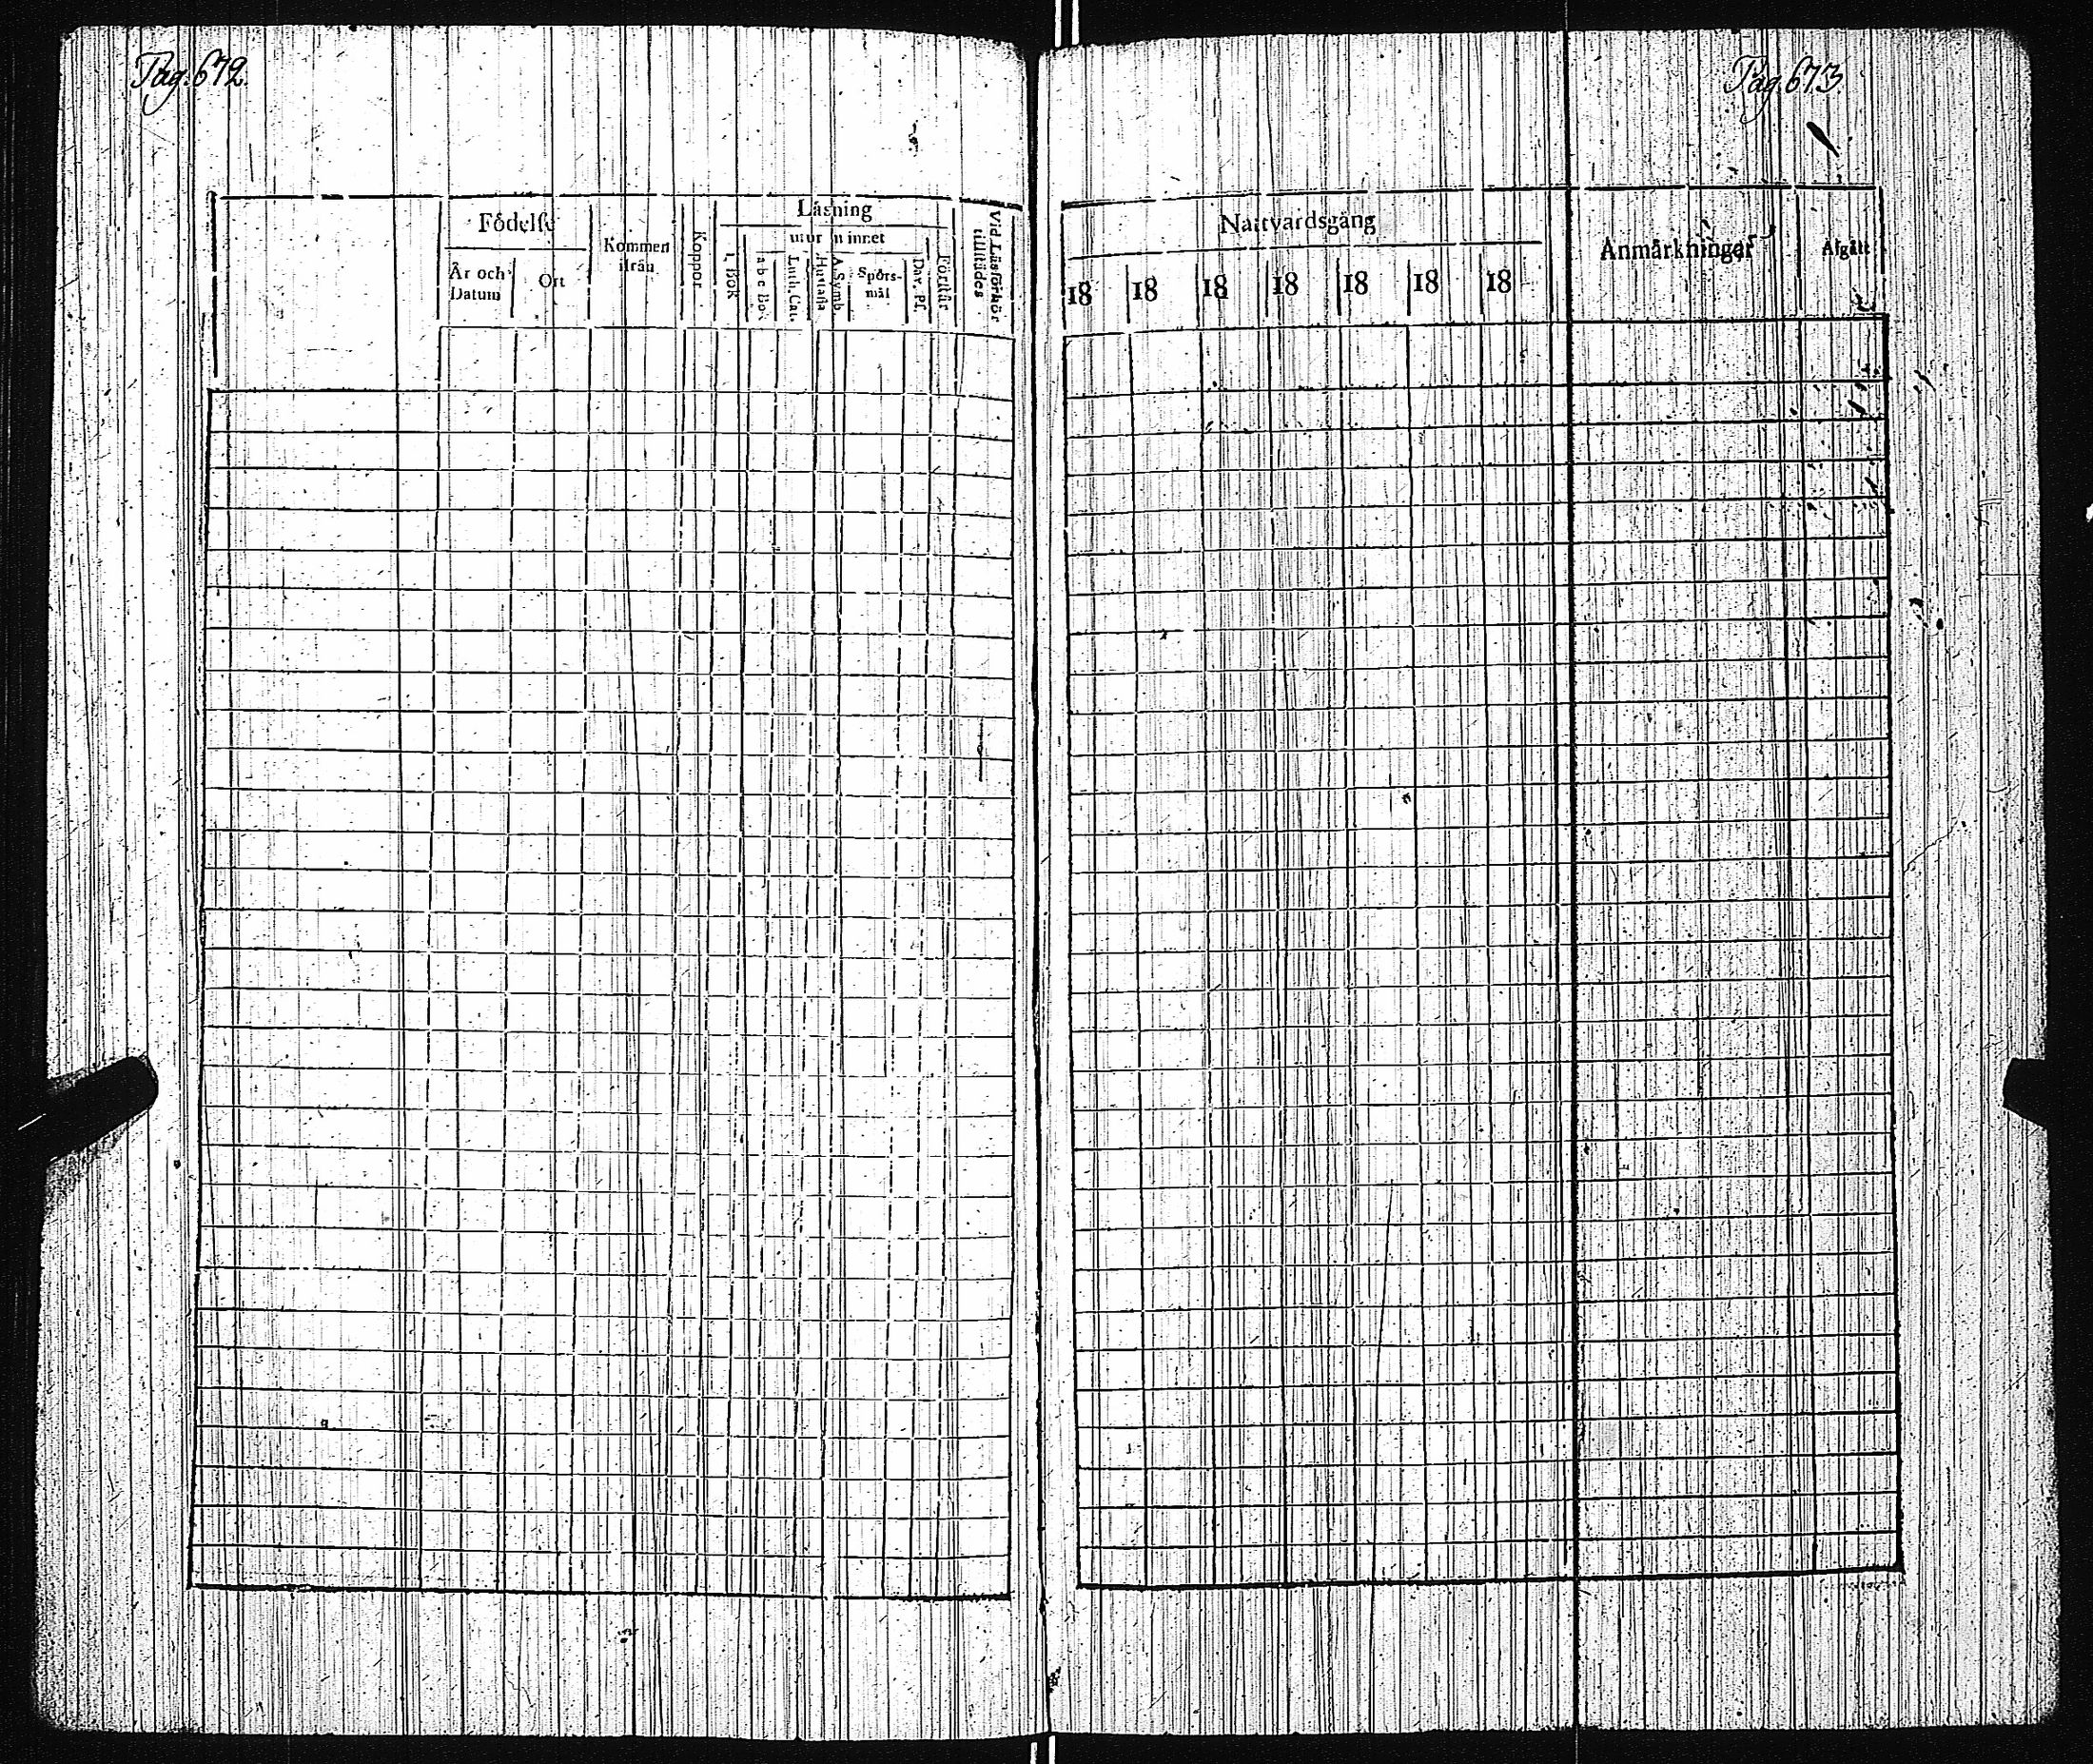 Pag. 672.
Födelse
År och Datum
Ort
Kommen ifrån
Koppor
Läsning
utur minnet
i Bok
a b c Bo.
Luth. Cat.
Hustafla
A. Symb.
Spörs-mål
Dav. Ps.
Förstår
Vid Läsförhör tillstädes
Pag. 673.
Nattvardsgång
18 18 18 18 18 18 18
Anmärkningar
Afgått